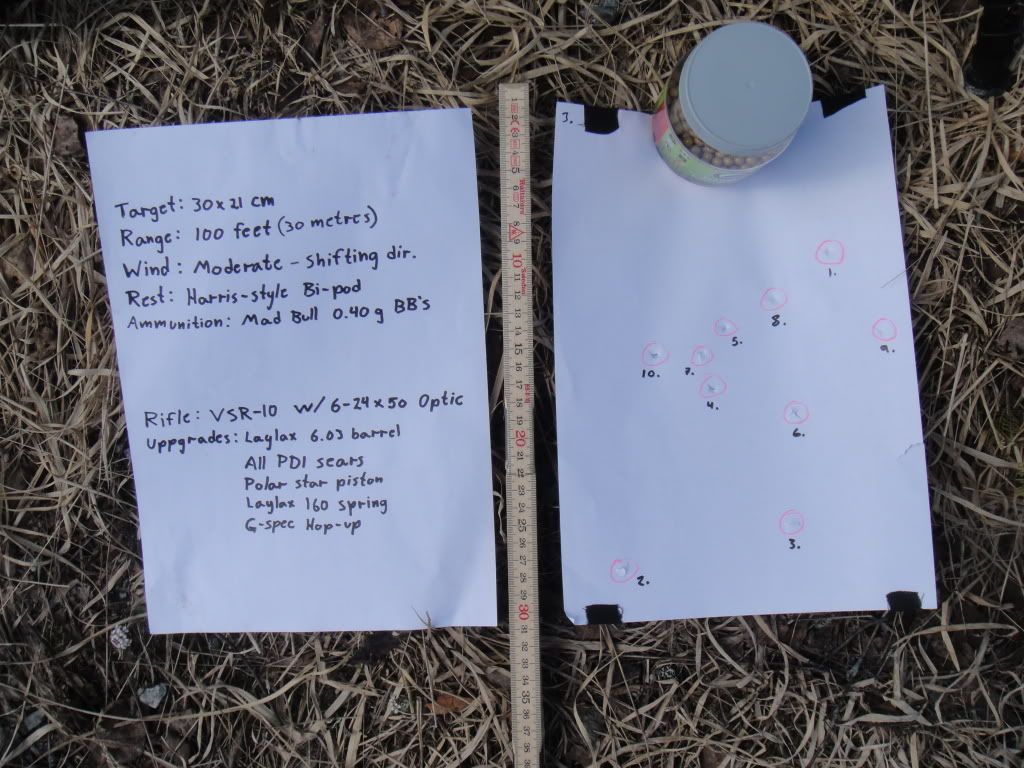 Target: 30x21 cm
Range: 100 feet (30 metres)
Wind: Moderate - shifting dir.
Rest: Harris-style Bi-pod
Ammunition: Mad Bull 0.40g BB's
Rifle: VSR-10 w/ 6-24x50 Optic
Uppgrades: Laylax 6.03 barrel
All PDI sears
Polar star piston
Laylax 160 spring
G-spec Hop-up
1
2
3
4
5
6
7
8
9
10
11
12
13
14
15
16
17
18
19
20
21
22
23
24
25
26
27
28
29
30
31
32
33
34
35
36
37
1.
8.
5.
9.
10.
7.
4.
6.
3.
2.